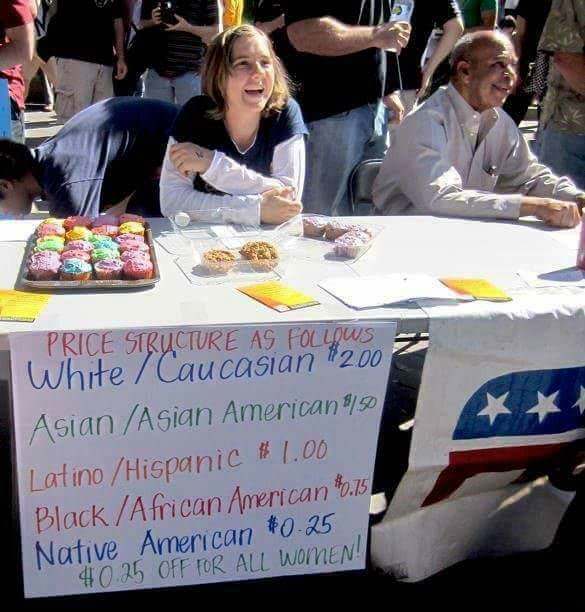 PRICE STRUCTURE AS FOLLOWS
White/Caucasian $2.00
Asian/Asian American $1.50
Latino/Hispanic $ 1.00
Black/African American $0.75
Native American $0.25
$0.25 OFF FOR ALL WOMEN!